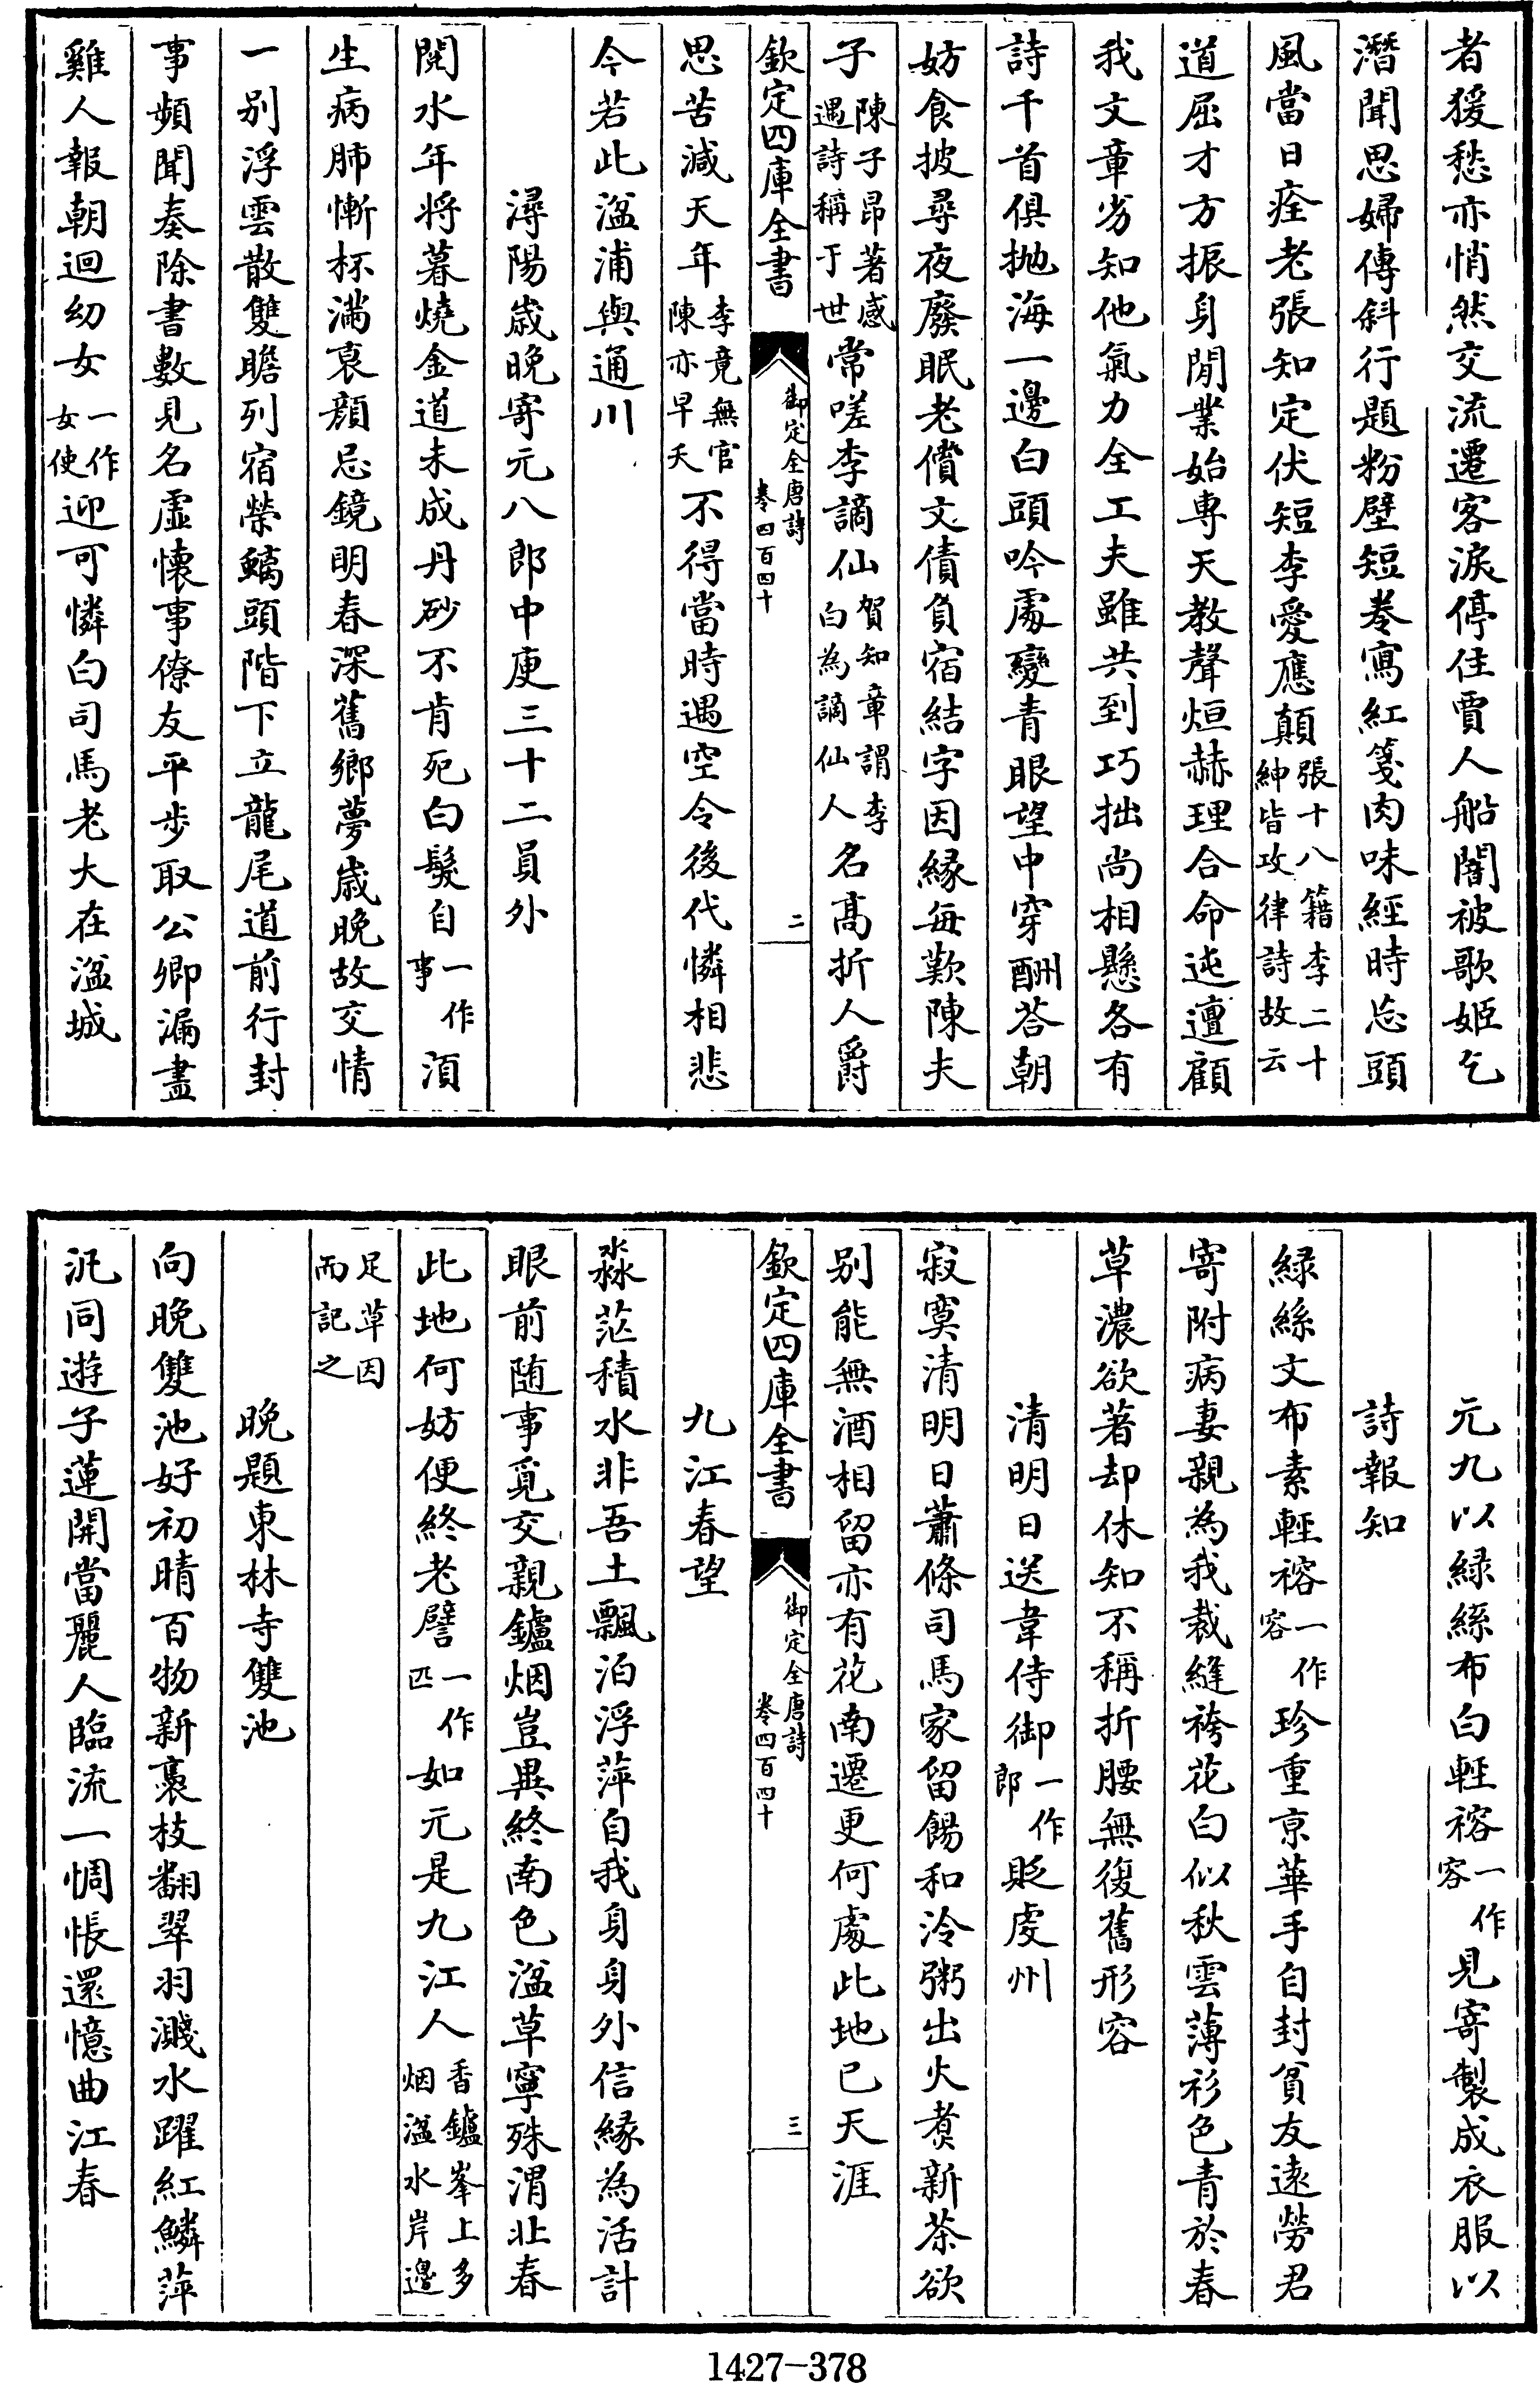 者猨愁亦悄然交流遷客淚停住賈人船闇被歌姬乞
潛聞思婦傳斜行題粉壁短巻寫紅箋肉味經時忘頭
風當日痊老張知定伏短李愛應顛張十八籍李二十紳皆攻律詩故云
道屈才方振身閒業始專天教聲烜赫理合命迍邅顧
我文章劣知他氣力全工夫雖共到巧拙尚相懸各有
詩千首俱抛海一邊白頭吟處變青眼望中穿酬荅朝
妨食披尋夜廢眠老償文債負宿結字因緣每歎陳夫
子陳子昂著感遇詩稱于世常嗟李謫仙賀知章謂李白為謫仙人名髙折人爵
欽定四庫全書 御定全唐詩 巻四百四十 二
思苦減天年李竟無官陳亦早夭不得當時遇空令後代憐相悲
今若此湓浦與通川
潯陽歳晩寄元八郎中庾三十二員外
閱水年将暮燒金道未成丹砂不肯死白髪自一作事須
生病肺慚杯滿衰顔忌鏡明春深舊鄉夢歳晩故交情
一别浮雲散雙瞻列宿榮螭頭階下立龍尾道前行封
事頻聞奏除書數見名虛懷事僚友平步取公卿漏盡
雞人報朝迴幼女一作女使迎可憐白司馬老大在湓城
元九以緑絲布白輕褣一作容見寄製成衣服以
詩報知
緑絲文布素輕褣一作容珍重京華手自封貧友遠勞君
寄附病妻親為我裁縫袴花白似秋雲薄衫色青於春
草濃欲著却休知不稱折腰無復舊形容
清明日送韋侍御一作郎貶虔州
寂寞清明日蕭條司馬家留餳和冷粥出火煑新茶欲
别能無酒相留亦有花南遷更何處此地已天涯
欽定四庫全書 御定全唐詩 巻四百四十 三
九江春望
淼茫積水非吾土飄泊浮萍自我身身外信緣為活計
眼前随事覓交親鑪烟豈異終南色湓草寧殊渭北春
此地何妨便終老譬一作匹如元是九江人香鑪峯上多烟湓水岸邊
足草因而記之
晩題東林寺雙池
向晩雙池好初晴百物新裛枝翻翠羽濺水躍紅鱗萍
汎同遊子蓮開當麗人臨流一惆悵還憶曲江春
1427-378